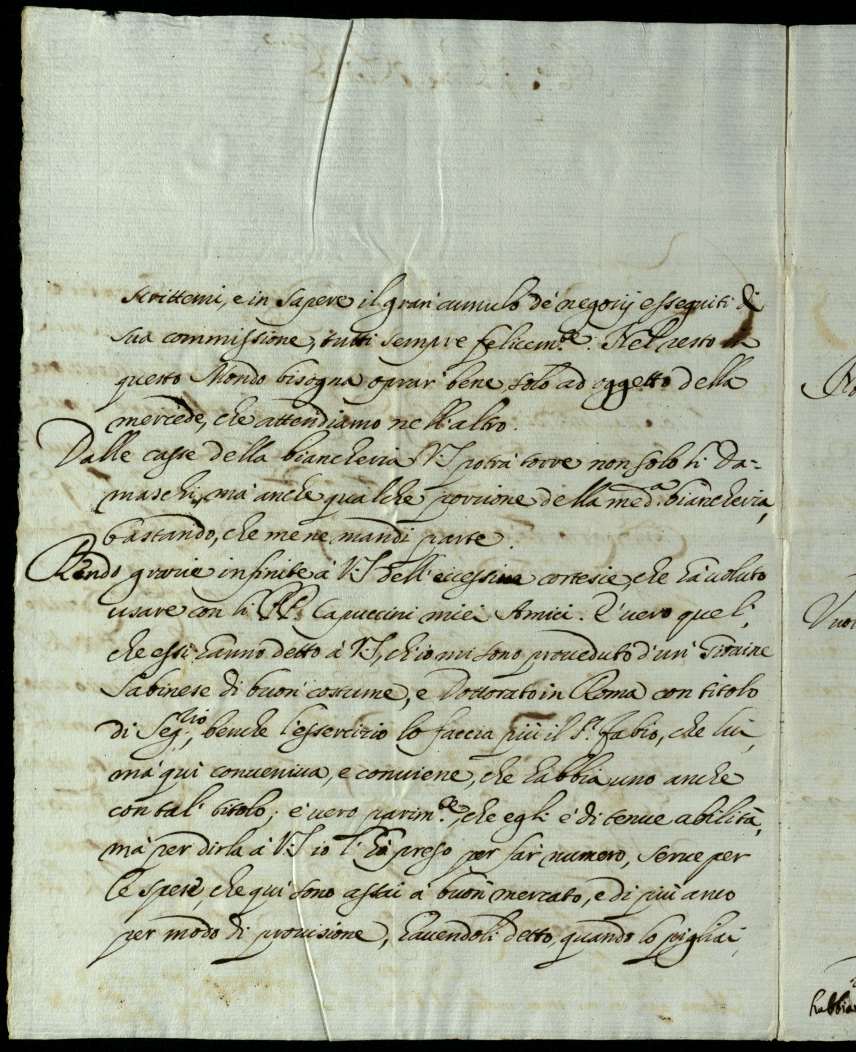 scrittemi, e in sapere il gran cumulo de negozij esseguiti di
sua commissione, tutti sempre felicem.te. Nel resto in
questo Mondo bisogna oprar bene solo ad oggetto della
mercede, che attendiamo nell'altro.
Dalle casse della biancheria V.S. potrà torre non solo li Da=
maschi, mà anche qualche porzione della med.a biancheria,
bastando, che me ne mandi parte.
Rendo grazie infinite à V.S. dell'eccessive cortesie, che hà voluto
usare con li PP. Capuccini miei Amici. È vero quel,
che essi hanno detto à V.S., ch'io mi sono proveduto d'un Giovine
Sabinese di buon costume, e Dottorato in Roma con titolo
di Seg.rio, benche l'essercizio lo faccia più il S.r Fabio, che lui,
mà qui conveniva, e conviene, che habbia uno anche
con tal titolo; è vero parim.te, che egli è di tenue abilità,
mà per dirla à V.S. io l'hò preso per far numero, serve per
le spese, che qui sono assai à buon mercato, e di più
per modo di provisione, havendoli detto, quando lo pigliai,
habbia